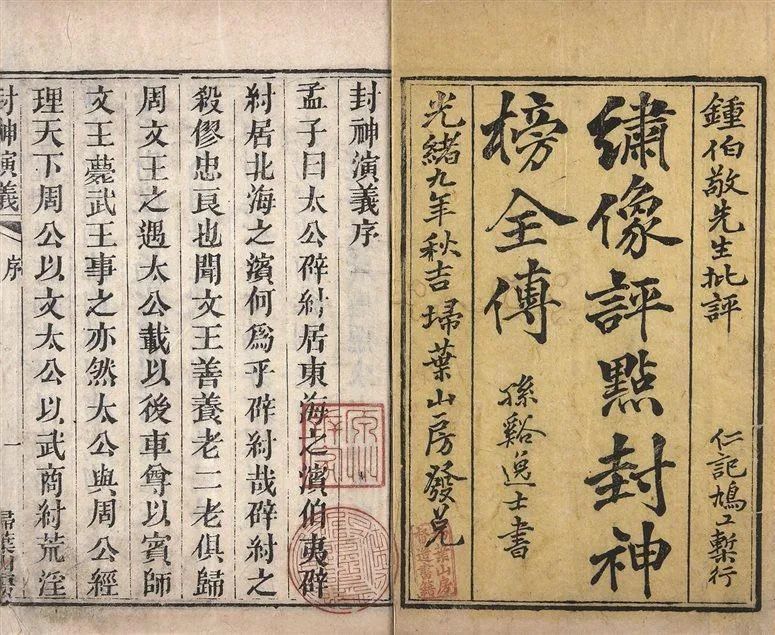 鍾伯敬先生批評
仁記鳩工槧行
繡像評點封神
榜全傳
孫谿逸士書
光緒九年秋吉埽葉山房發兌
封神演義序
孟子曰太公辟紂居東海之濱伯夷辟
紂居北海之濱何爲乎辟紂哉辟紂之
殺僇忠良也聞文王善養老二老俱歸
周文王之遇太公載以後車尊以賓師
文王薨武王事之亦然太公與周公經
理天下周公以文太公以武商紂荒淫
封神演義
序
一